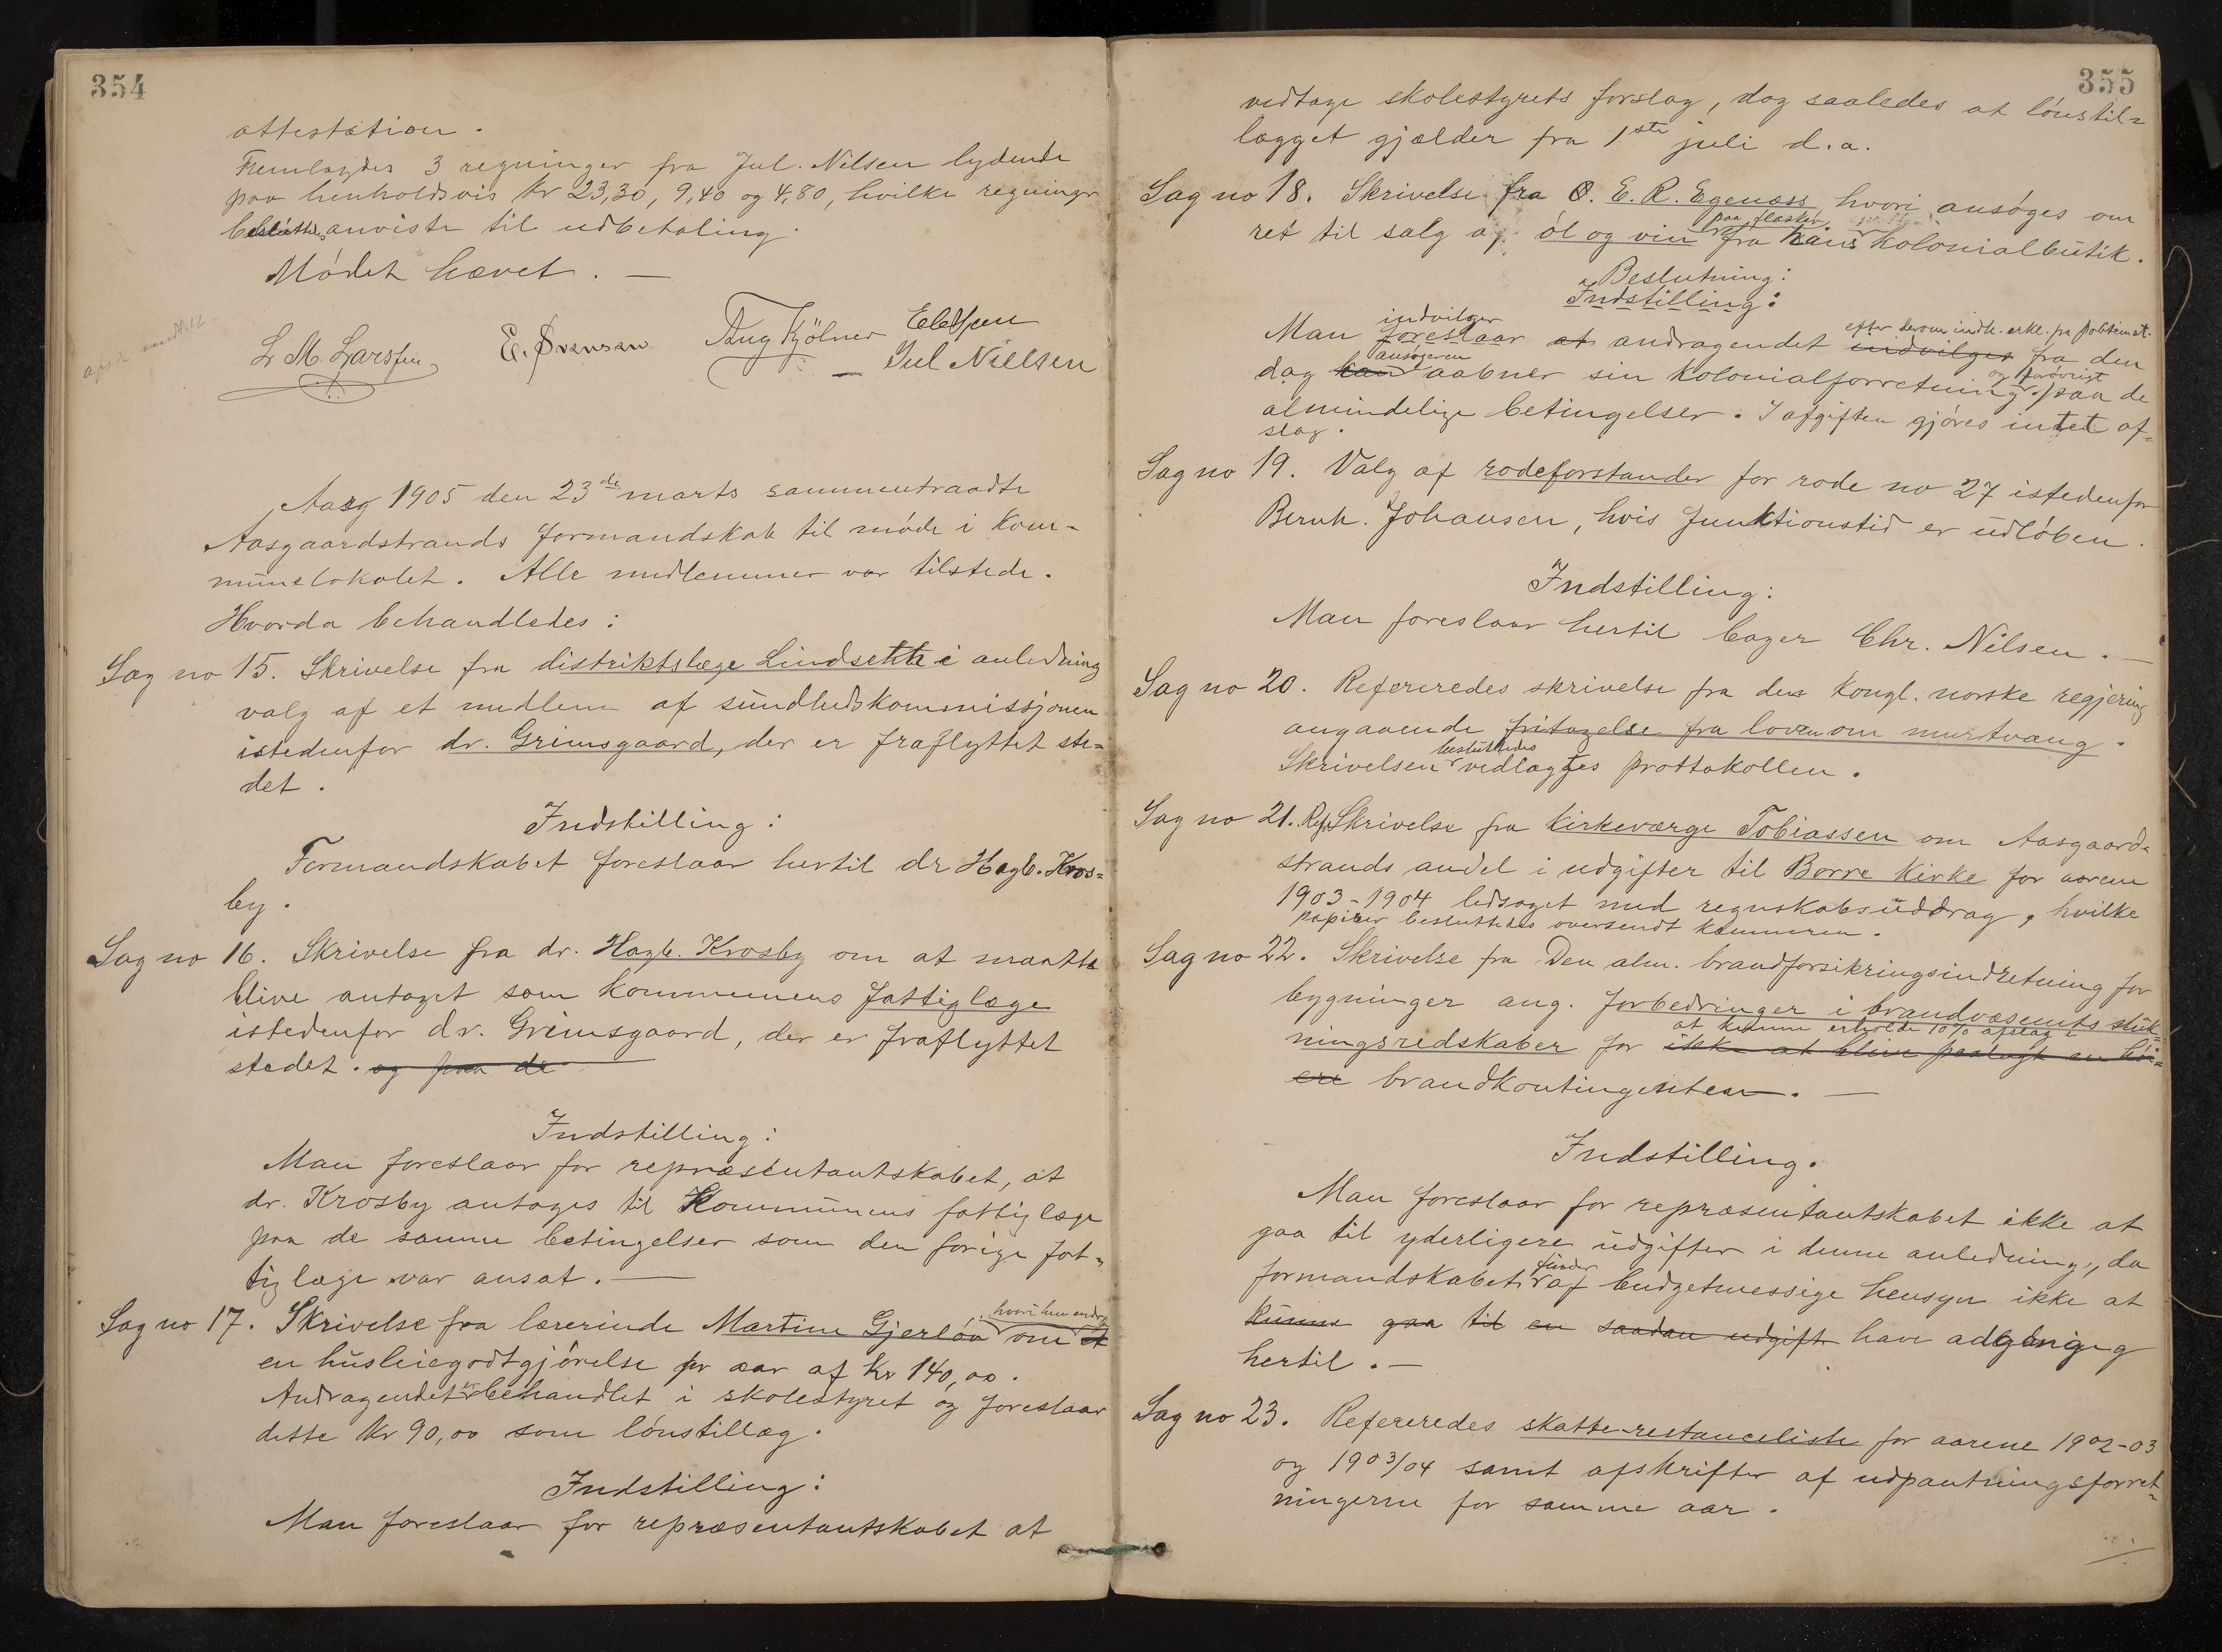 354
attestation.
Fremlagdes 3 regninger fra Jul. Nilsen lydende
paa henholdsvis kr 23,30, 9,40 og 4,80, hvilke regninger
besluttedes anviste til udbetaling.
Mødet hævet. —
L M Larssen E. Svensen Aug Kjölner Ellefsen
Jul Nielsen
Aasg 1905 den 23de marts sammentraadte
Aasgaardstrands formandskab til møde i kom-
munelokalet. Alle medlemmer var tilstede.
Hvorda behandledes:
Sag no 15. Skrivelse fra distriktslæge Lindseth i anledning
valg af et medlem af sundhedskommissjonen
istedenfor dr. Grimsgaard, der er fraflyttet ste=
det.
Indstilling:
Formandskabet foreslaar hertil dr Hagb. Kros=
by.
Sag no 16. Skrivelse fra dr. Hagb. Krosby om at maatte
blive antaget som kommunens fattiglæge
istedenfor dr. Grimsgaard, der er fraflyttet
stedet. og paa de
Indstilling:
Man foreslaar for repræsentantskabet, at
dr. Krosby antages til kommunens fattiglæge
paa de samme betingelser som den forige fat=
tiglæge var ansat. —
Sag no 17. Skrivelse fra lærerinde Martine Gjerløv hvori hun andrag om et
en husleiegodtgjørelse pr aar af kr 140,00.
Andragendet er behandlet i skolestyret og foreslaar
dette kr 90,00 som lønstillæg.
Indstilling:
Man foreslaar for repræsentantskabet at
355
vedtage skolestyrets forslag, dog saaledes at lønstil=
lægget gjælder fra 1ste juli d.a.
Sag no 18. Skrivelse fra O. E. R. Egenæss hvori ansøges om
ret til salg af øl og vin paa flasker fra hans kolonialbutik.
Beslutning:
Indstilling:
Man indvilger foreslaar at andragendet efter derom indh. erkl. fra politimst. indvilges fra den
dag han ansøgeren aabner sin kolonialforretning og forøvrigt paa de
almindelige betingelser. I afgiften gjøres intet af=
slag.
Sag no 19. Valg af rodeforstander for rode no 27 istedenfor
Bernh. Johansen, hvis funktionstid er udløben.
Indstilling:
Man foreslaar hertil bager Chr. Nilsen. —
Sag no 20. Refereredes skrivelse fra den kongl. norske regjering
angaaende fritagelse fra loven om murtvang.
Skrivelsen besluttedes vedlagges prottokollen.
Sag no 21. Ref. Skrivelse fra kirkeværge Tobiassen om Aasgaard=
strands andel i udgifter til Borre kirke for aarene
1903-1904 ledsaget med regnskabsuddrag, hvilke
papirer besluttedes oversendt kæmneren.
Sag no 22. Skrivelse fra Den alm. brandforsikringsindretning for
bygninger ang. forbedringer i brandvæsenets sluk=
ningsredskaber for at kunne erholde 10% afslag i ikke at blive paalagt en høi=
ere brandkontingenten. —
Indstilling.
Man foreslaar for repræsentantskabet ikke at
gaa til yderligere udgifter i denne anledning, da
formandskabet finder af budgetmessige hensyn ikke at
kunne gaa til en saadan udgift have adgang
hertil. —
Sag no 23. Refereredes skatte-restanceliste for aarene 1902-03
og 1903/04 samt afskrifter af udpantningsforret=
ningerne for samme aar.